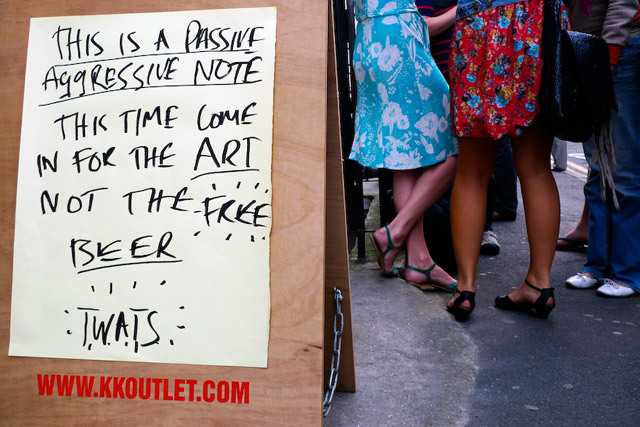 THIS IS A PASSIVE
AGGRESSIVE NOTE
THIS TIME COME
IN FOR THE ART
NOT THE FREE
BEER
TWATS
WWW.KKOUTLET.COM